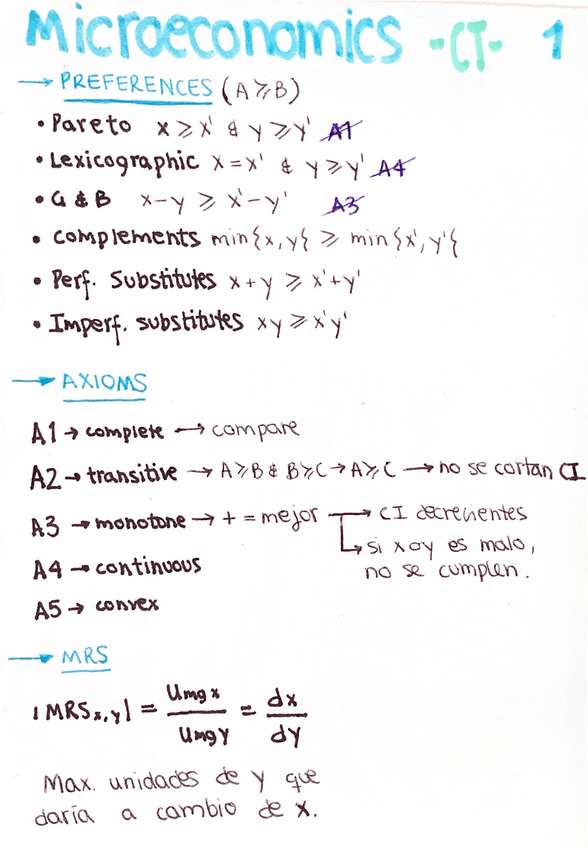 Microeconomics -CT- 1
→ PREFERENCES (A≽B)
• Pareto x ≥ x' & y ≥ y' A1
• Lexicographic x = x' & y ≥ y' A4
• G & B x-y ≥ x'-y' A3
• complements min{x,y} ≥ min{x',y'{
• Perf. Substitutes x+y ≥ x'+y'
• Imperf. substitutes xy ≥ x'y'
→ AXIOMS
A1 → complete → compare
A2 → transitive → A≽B & B≽C → A≽C → no se cortan CI
A3 → monotone → + = mejor → CI decrecientes
↳ si x o y es malo,
no se cumplen.
A4 → continuous
A5 → convex
→ MRS
|MRSx,y| = Umgx / Umgy = dx / dy
Max. unidades de y que
daría a cambio de x.